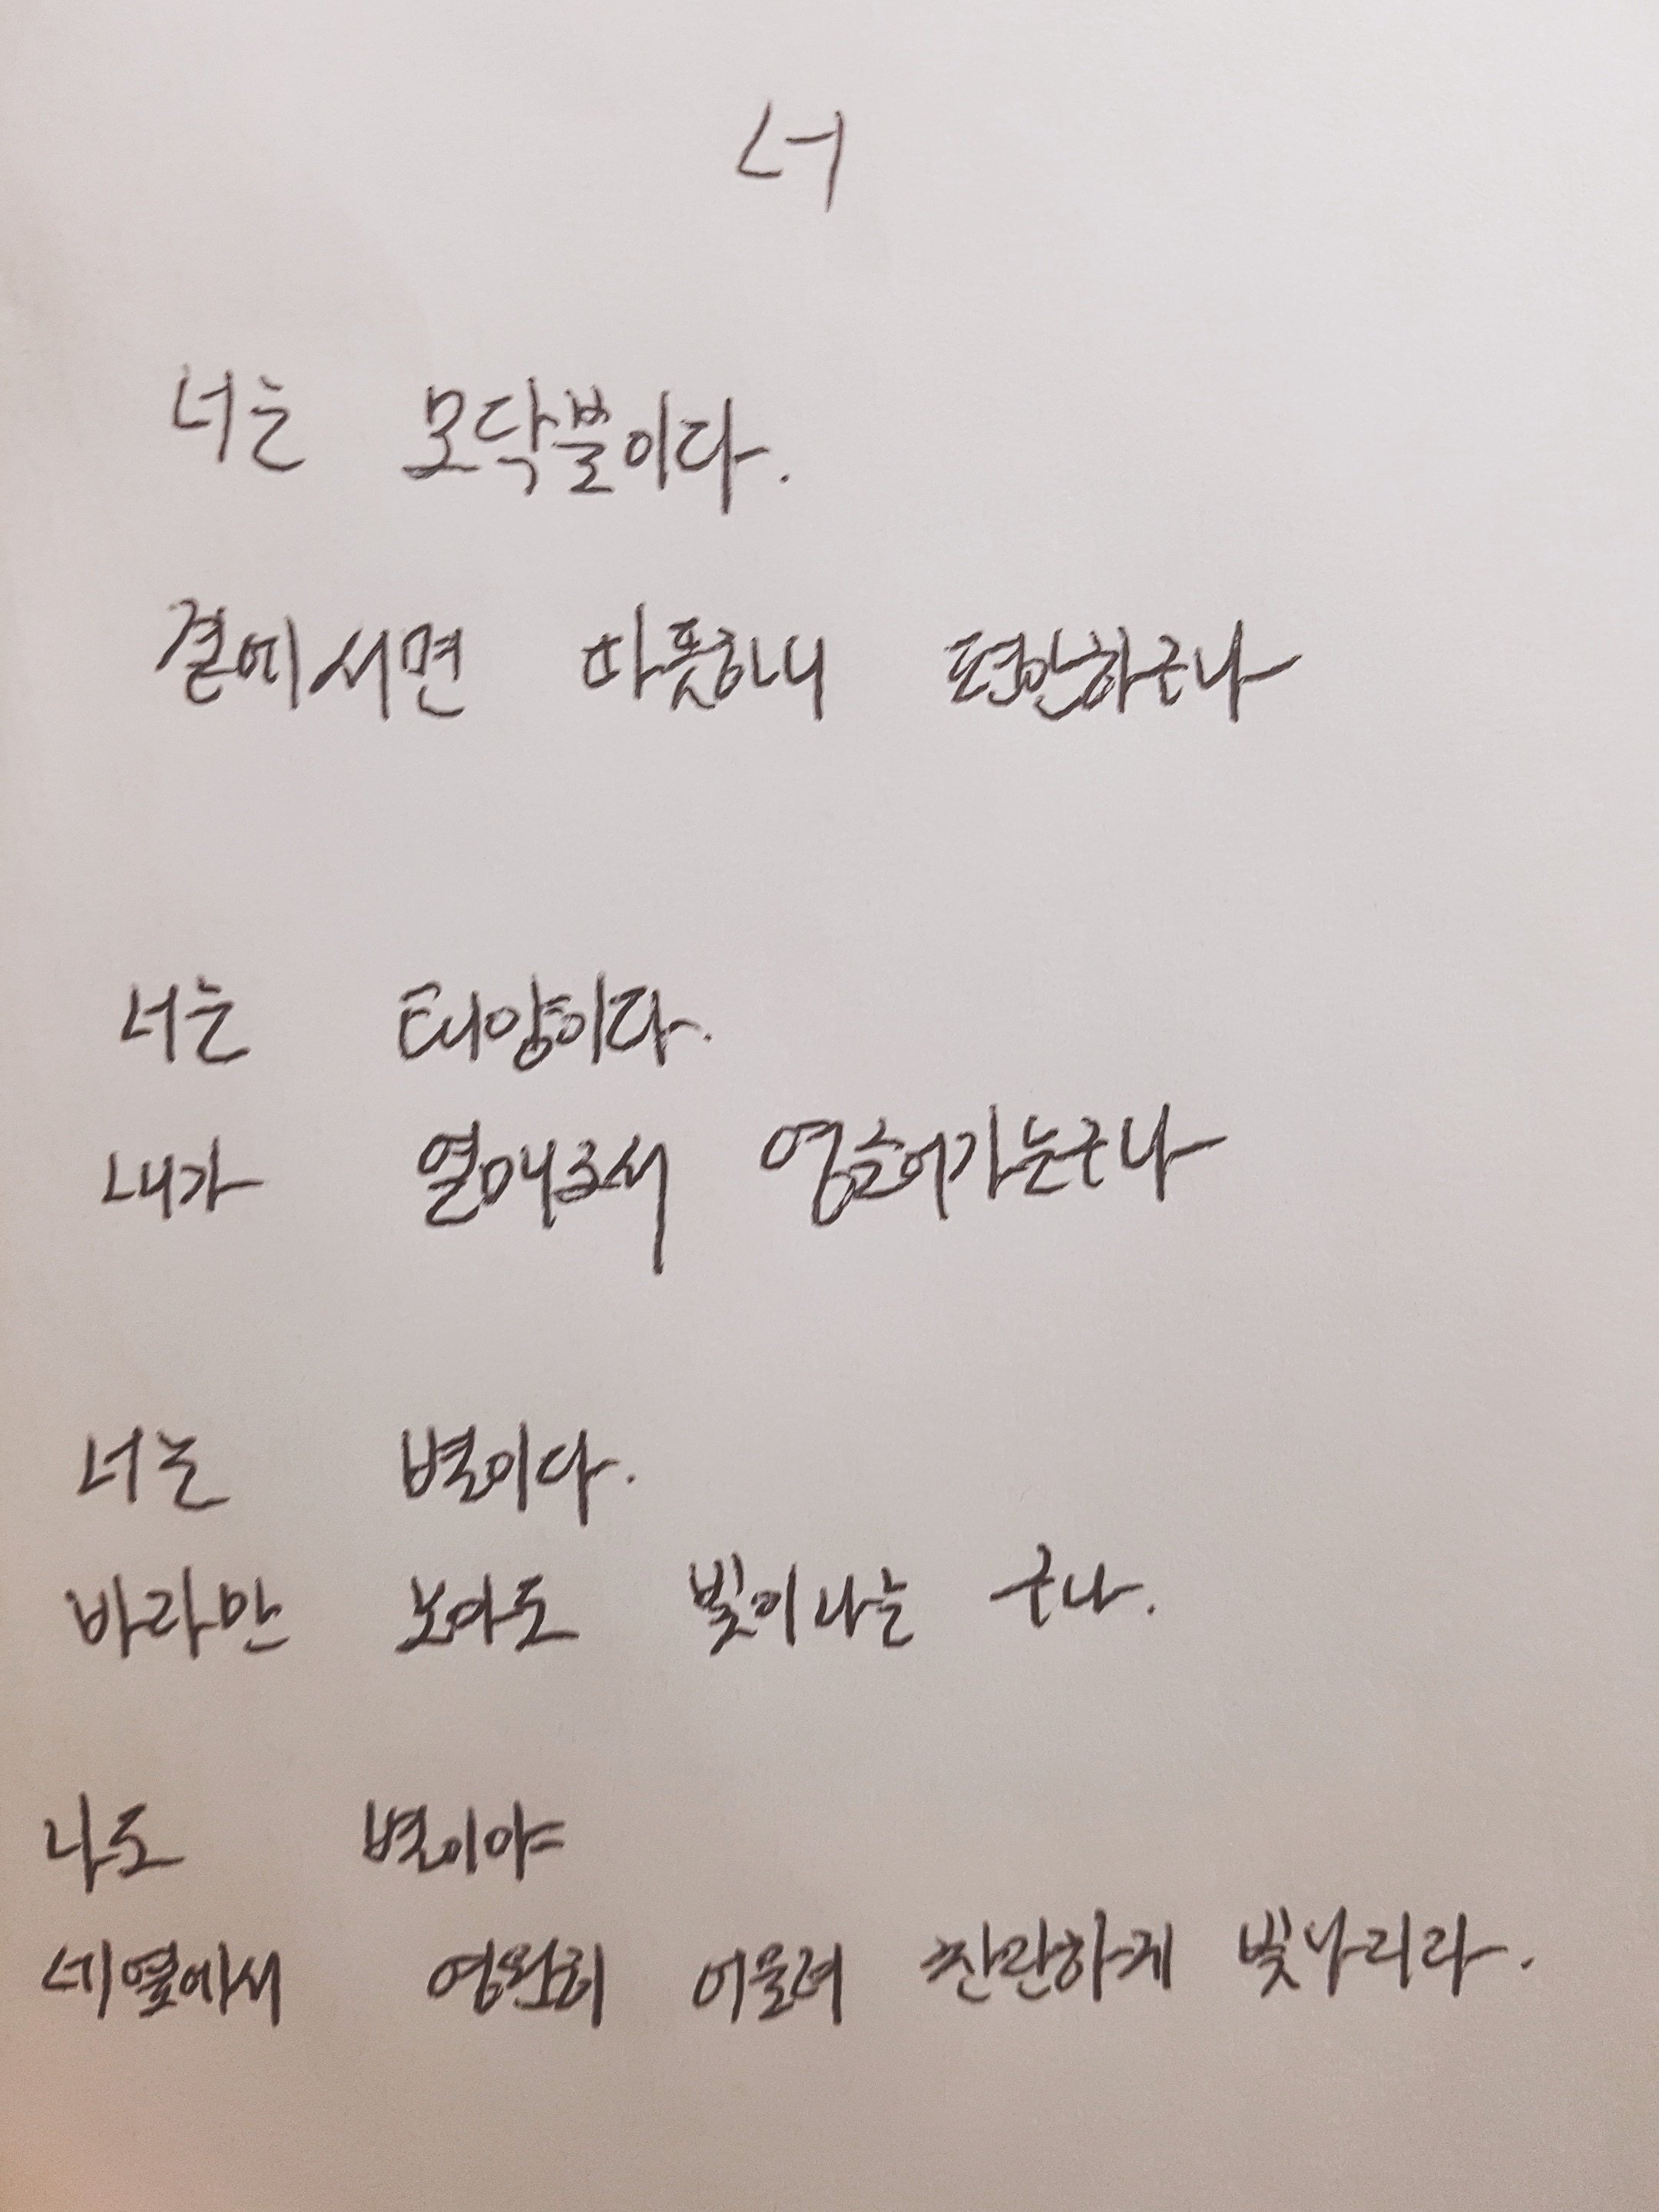 너
너는 모닥불이다.
곁에서면 따뜻하니 편안하구나
너는 태양이다.
내가 열매로서 영글어가는구나
너는 별이다.
바라만 보아도 빛이나는 구나.
나도 별이야
네옆에서 영원히 어울려 찬란하게 빛나리라.